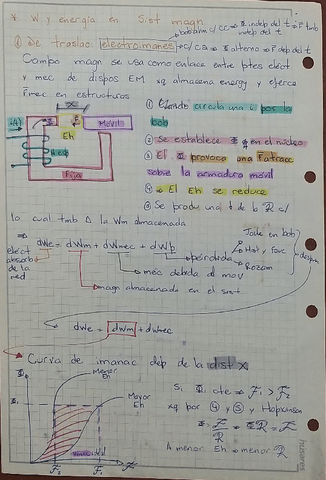 * W y energía en Sist magn
bob alim c/ CC ⇒ Φ indep del t ⇒ F tmb indep del t
① De traslac electroimanes CA ⇒ Φ alterno ⇒ F dep del t
Campo magn se usa como enlace entre ptes eléct
y mec de dispos EM xq almacena energy y ejerce
Fmec en estructuras
x
Móvil
Eh
Fija
① Cuando circula una i por la
bob
② Se establece Φ en el núcleo
③ El Φ provoca una Fatracc
sobre la armadura móvil
④ ⇒ El Eh se reduce
⑤ Se produ una ↓ de la R
lo cual tmb Δ la Wm almacenada
dWe = dWm + dWmec + dWp
eléct
absorb
de la
red
pérdida
Joule en bob
Hist y Fouc
Rozam
mec debida al mov
magn almacenado en el sist
dWe = dWm + dWmec
Curva de imanac dep de la dist x
Menor
Eh
Mayor
Eh
Φ
Φ₁
F₂
F₁
F
Si Φ cte ⇒ F₁ > F₂
xq por ④ y ⑤ y Hopkinson
Φ = F/R ⇒ ΦR = F
A menor Eh ⇒ menor R
husares